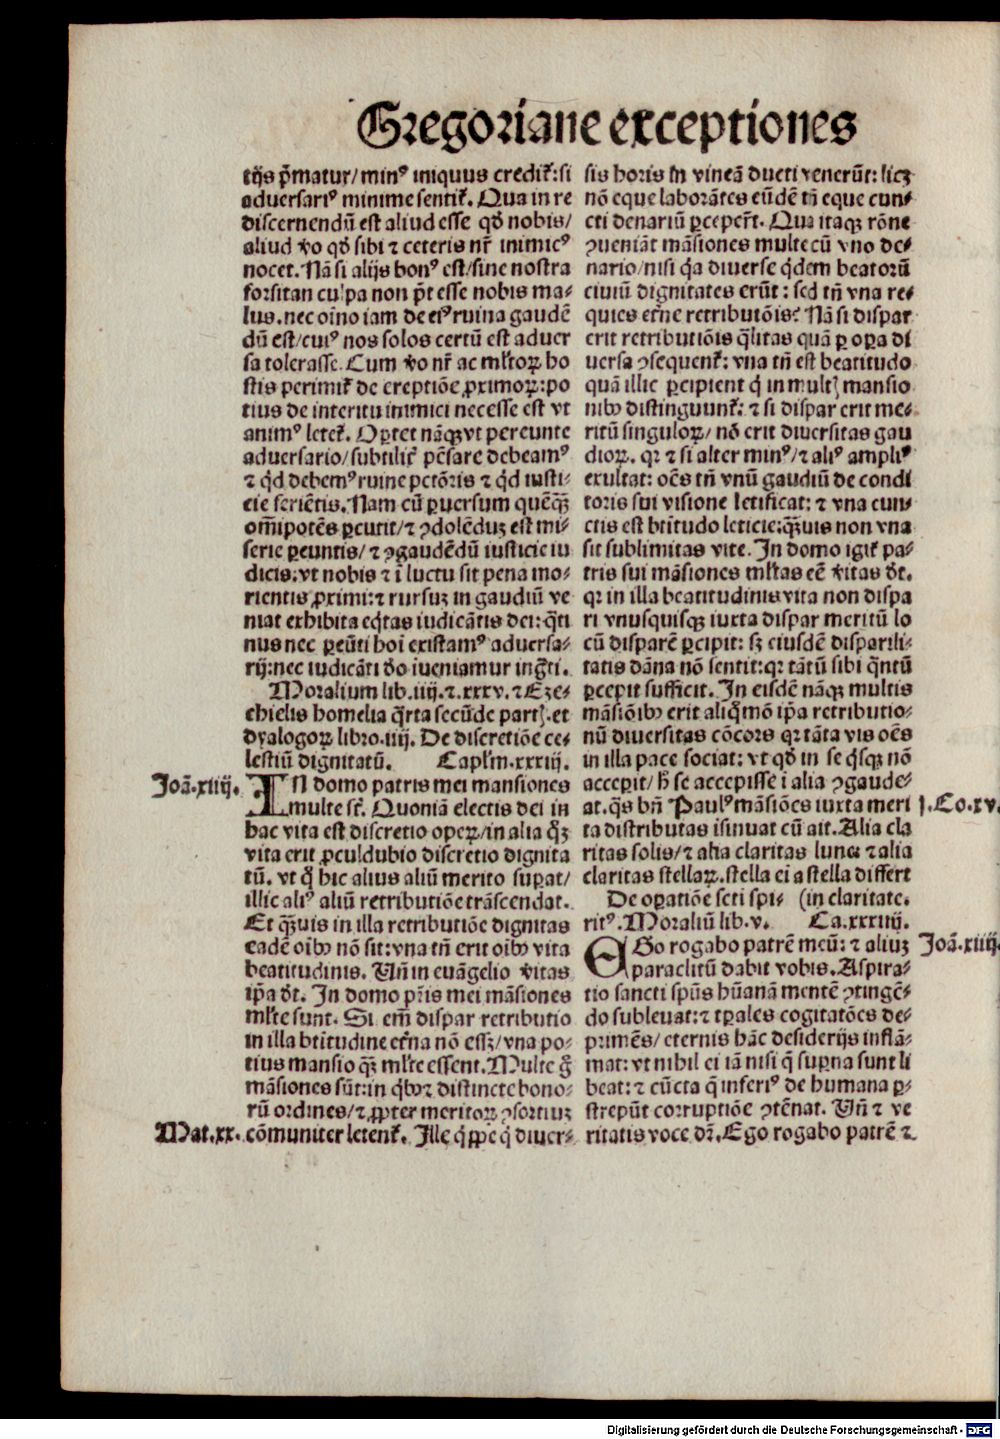 Gregoriane exceptiones
tijs p̃matur/ minꝰ iniquus credit᷑: si
aduersariꝰ minime sentit᷑. Qua in re
discernendũ est aliud esse qð nobis/
aliud ꝟo qð sibi ⁊ ceteris nr̃ inimicꝰ
nocet. Nã si alijs bonꝰ est/ sine nostra
forsitan culpa non p̃t esse nobis ma⸗
lus. nec oĩno iam de eiꝰ ruina gaudẽ
dũ est/ cuiꝰ nos solos certũ est aduer
sa tolerasse. Cum ꝟo nr̃ ac ml̃toꝝ ho
stis perimit᷑ de ereptiõe ꝓximoꝝ: po
tius de interitu inimici necesse est vt
animꝰ letet᷑. Oꝑtet nãqꝫ vt pereunte
aduersario/ subtilit᷑ pẽsare debeamꝰ
⁊ qͥd debemꝰ ruine pctõris ⁊ qͥd iusti⸗
cie feriẽtis. Nam cũ ꝑuersum quẽqꝫ̃
om̃ipotẽs ꝑcutit/ ⁊ ꝯdolẽduꝫ est mi⸗
serie ꝑeuntis/ ⁊ ꝯgaudẽdũ iusticie iu
dicis: vt nobis ⁊ ĩ luctu sit pena mo⸗
rientis ꝓximi: ⁊ rursuꝫ in gaudiũ ve
niat exhibita eqͥtas iudicãtis dei: qͣti
nus nec ꝑeũti hoĩ existamꝰ aduersa⸗
rij: nec iudicãti ðo iueniamur ingͣti.
Moralium lib. iiij. ⁊. xxxv. ⁊ Eze⸗
chielis homelia qͣrta secũde partꝭ. et
dyalogoꝝ libro. iiij. De discretiõe ce⸗
lestiũ dignitatũ. Caplm̃. xxxiij.
Joã. xiiij. IN domo patris mei mansiones
multe st̃. Quoniã electis dei in
hac vita est discretio opeꝝ/ in alia qͦꝫ
vita erit ꝓculdubio discretio dignita
tũ. vt qͦ hic alius aliũ merito suꝑat/
illic aliꝰ aliũ retributiõe trãscendat.
Et qꝫ̃uis in illa retributiõe dignitas
eadẽ oĩbꝰ nõ sit: vna tñ erit oĩbꝰ vita
beatitudinis. Vñ in euãgelio ꝟitas
ip̃a ðt. In domo pr̃is mei mãsiones
ml̃te sunt. Si em̃ dispar retributio
in illa bt̃itudine et̃na nõ essꝫ/ vna po⸗
tius mansio qꝫ̃ ml̃te essent. Multe gͦ
mãsiones sũt: in qͥbꝰ ⁊ distincte bono⸗
rũ ordines/ ⁊ ꝓpter meritoꝝ ꝯsortiuꝫ
Mat. xx. cõmuniter letent᷑. Ille qͥppe qͥ diuer⸗
sis horis in vineã ducti venerũt: licꝫ
nõ eque laborãtes eũdẽ tñ eque cun⸗
cti denariũ ꝑceper̃t. Qua itaqꝫ rõne
ꝯueniãt mãsiones multe cũ vno de⸗
nario/ nisi qͥa diuerse qͥdem beatorũ
ciuiũ dignitates erũt: sed tñ vna re⸗
quies et̃ne retributiõis? Nã si dispar
erit retributiõis qͣlitas quã ꝑ oꝑa di
uersa ꝯsequent᷑: vna tñ est beatitudo
quã illic ꝑcipient qͥ in multꝭ mansio
nibꝰ distinguunt᷑: ⁊ si dispar erit me⸗
ritũ singuloꝝ/ nõ erit diuersitas gau
dioꝝ. qꝛ ⁊ si alter minꝰ/ ⁊ aliꝰ ampliꝰ
exultat: oẽs tñ vnũ gaudiũ de condi
toris sui visione letificat: ⁊ vna cun⸗
ctis est bt̃itudo leticie: qꝫ̃uis non vna
sit sublimitas vite. In domo igit᷑ pa⸗
tris sui mãsiones ml̃tas eẽ ꝟitas ðt.
qꝛ in illa beatitudinis vita non dispa
ri vnusquisqꝫ iuxta dispar meritũ lo
cũ disparẽ ꝑcipit: sꝫ eiusdẽ disparili⸗
tatis dãna nõ sentit: qꝛ tãtũ sibi qͣntũ
ꝑcepit sufficit. In eisdẽ nãqꝫ multis
mãsiõibꝰ erit aliqͦmõ ip̃a retributio⸗
nũ diuersitas cõcors qꝛ tãta vis oẽs
in illa pace sociat: vt qð in se qͥsqꝫ nõ
acceꝑit/ h̃ se accepisse i alia ꝯgaude⸗
at. qͣs bñ Paulꝰ mãsiões iuxta meri j. Co. xv.
ta distributas isinuat cũ ait. Alia cla
ritas solis/ ⁊ alia claritas lune ⁊ alia
claritas stellaꝝ. stella ei a stella differt
De oꝑatiõe scti spi⸗ (in claritate.
ritꝰ. Moraliũ lib. v. Ca. xxxiiij.
EGo rogabo patrẽ meũ: ⁊ aliuꝫ Joã. xiiij.
paraclitũ dabit vobis. Aspira⸗
tio sancti spũs hũanã mentẽ ꝯtingẽ⸗
do subleuat: ⁊ tꝑales cogitatões de⸗
primẽs/ eternis hãc desiderijs inflã⸗
mat: vt nihil ei iã nisi qͣ suꝑna sunt li
beat: ⁊ cũcta qͣ inferiꝰ de humana ꝑ⸗
strepũt corruptiõe ꝯtẽnat. Vñ ⁊ ve
ritatis voce dr̃. Ego rogabo patrẽ ⁊
Digitalisierung gefördert durch die Deutsche Forschungsgemeinschaft - DFG